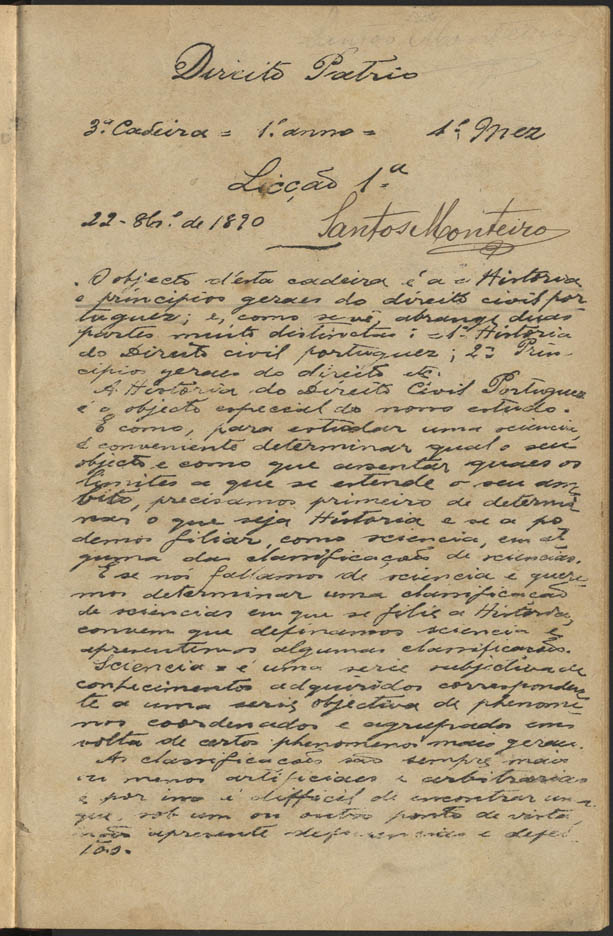 Direito Patrio
3ª Cadeira = 1º anno = 1º Mez
Licção 1ª
22-8br.º de 1890 Santos Monteiro
O objecto d'esta cadeira é a Historia
e principios geraes do direito civil por
tuguez; e, como se vê, abrange duas
partes muito distinctas: =1ª Historia
do Direito civil portuguez; 2ª Prin-
cipios geraes do direito etc.
A Historia do Direito Civil Portuguez
é o objecto especial do nosso estudo.
E como, para estudar uma sciencia
é conveniente determinar qual o seu
objecto e como que assentar quaes os
limites a que se estende o seu am-
bito, precisamos primeiro de determi-
nar o que seja Historia e se a po
demos filiar, como sciencia, em al
guma das classificações de sciencias.
E se nós fallamos de sciencia e quere
mos determinar uma classificação
de sciencias em que se filie a Historia,
convem que definamos sciencia e
apresentemos algumas classificações.
Sciencia = é uma serie subjectiva de
conhecimentos adquiridos corresponden-
te a uma serie objectiva de phenome
nos coordenados e agrupados em
volta de certos phenomenos mais geraes.
As classificações são sempre mais
ou menos artificiaes e arbitrarias
e por isso é difficil de encontrar uma
que, sob um ou outro ponto de vista,
não apresente e defei
tos.